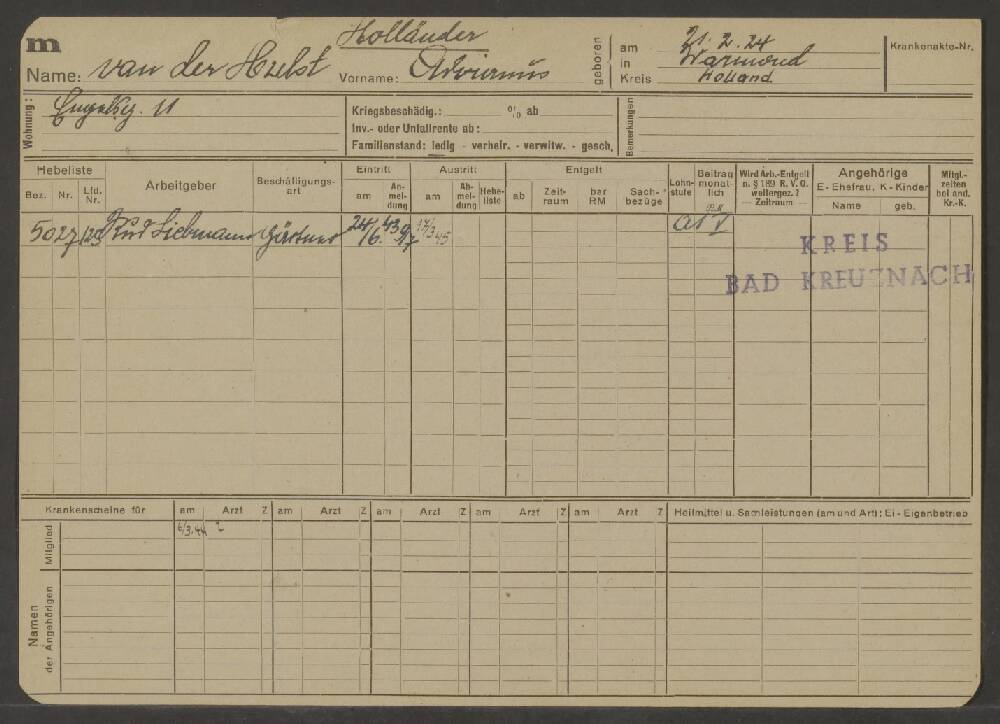 m
Holländer
Name: van der Hulst Vorname: Adrianus
geboren am 21.2.24
in Warmond
Kreis Holland
Krankenakte-Nr.
Wohnung: 11
Kriegsbeschädig.: % ab
Inv.- oder Unfallrente ab:
Familienstand: ledig - verheir. - verwitw. - gesch.
Bemerkungen
Hebeliste Arbeitgeber Beschäftigungsart Eintritt Austritt Entgelt Lohnstufe Beitrag monatlich Wird Arb.-Entgelt n. § 189 R.V.O. weitergez.? — Zeitraum — Angehörige E - Ehefrau, K - Kinder Mitgl.-zeiten bei and. Kr.-K.
Bez. Nr. Lfd. Nr. am An-mel-dung am Ab-mel-dung Hebe-liste ab Zeit-raum bar RM Sach-bezüge Name geb.
5027 125 Liebmann Gärtner 24/6. 43 9/7 17/3 45
KREIS
BAD KREUZNACH
Krankenscheine für am Arzt Z am Arzt Z am Arzt Z am Arzt Z am Arzt Z Heilmittel u. Samleistungen (am und Art): Ei - Eigenbetrieb
Mitglied 6/3.44
Namen der Angehörigen